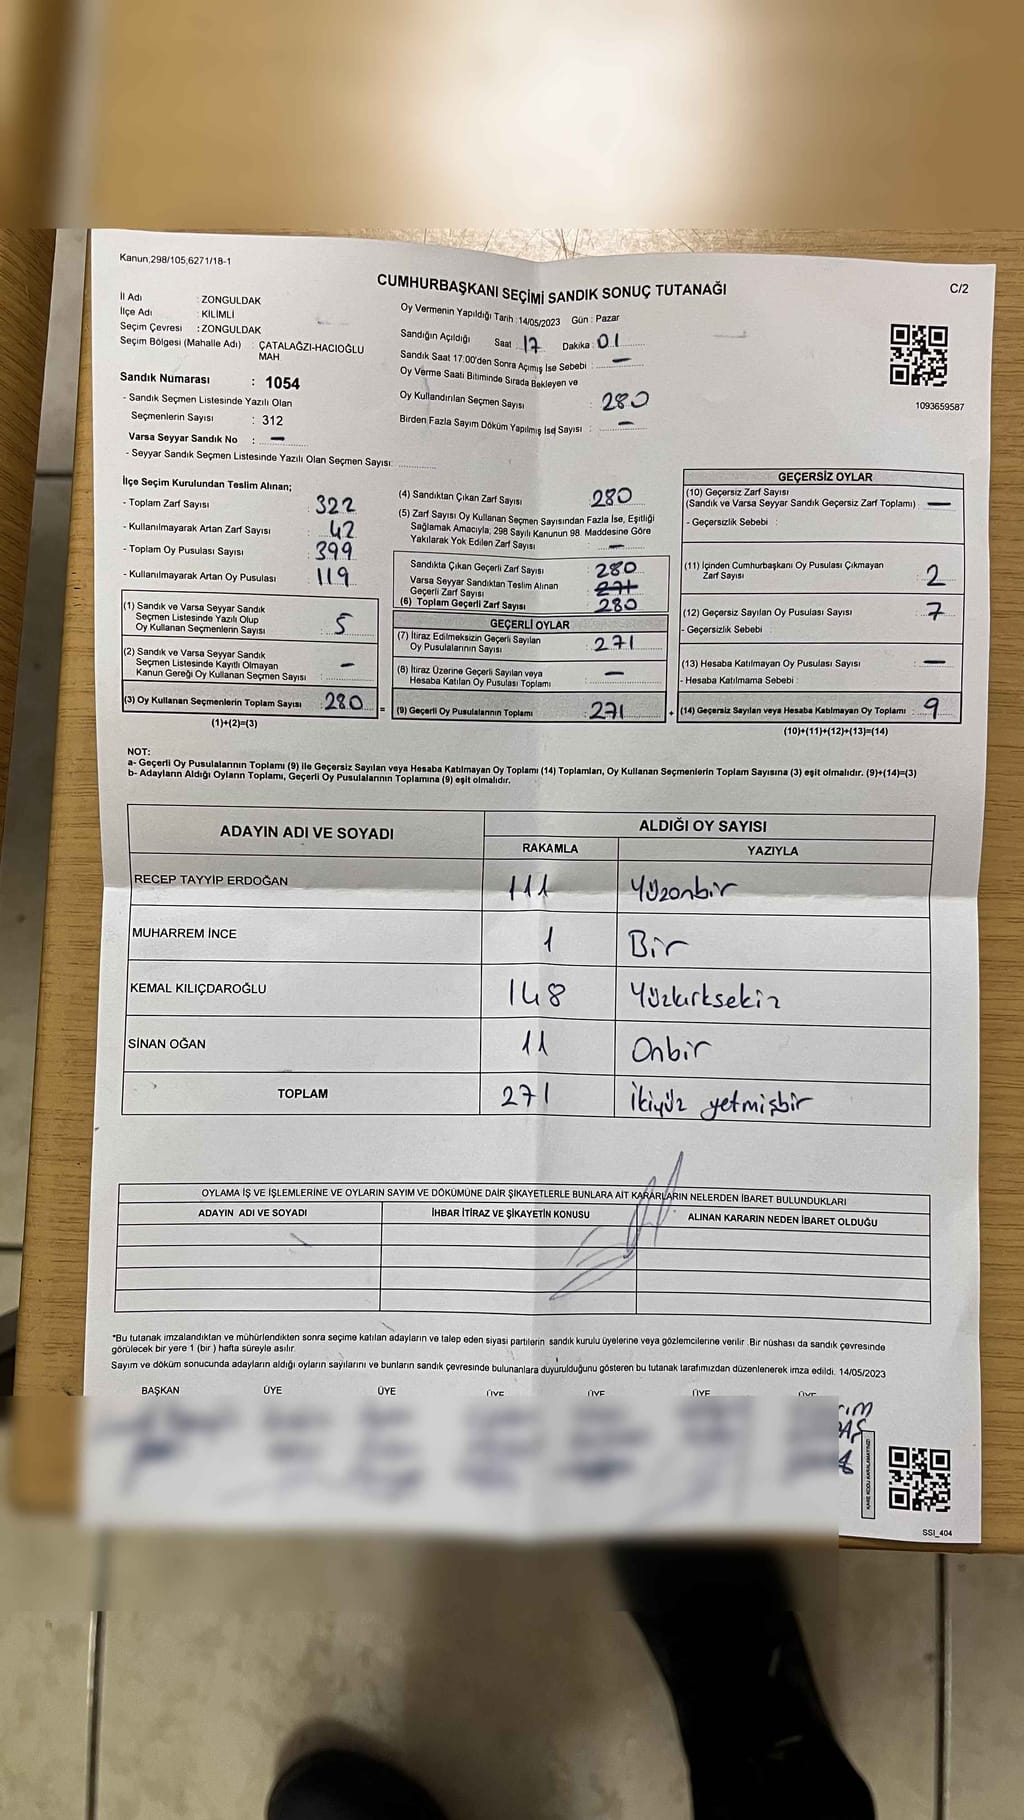 Kanun.298/105,6271/18-1
CUMHURBAŞKANI SEÇİMİ SANDIK SONUÇ TUTANAĞI
C/2
İl Adı : ZONGULDAK
İlçe Adı : KİLİMLİ
Seçim Çevresi : ZONGULDAK
Seçim Bölgesi (Mahalle Adı) : ÇATALAĞZI-HACIOĞLU
MAH
Sandık Numarası : 1054
- Sandık Seçmen Listesinde Yazılı Olan
Seçmenlerin Sayısı : 312
Varsa Seyyar Sandık No : —
- Seyyar Sandık Seçmen Listesinde Yazılı Olan Seçmen Sayısı:
Oy Vermenin Yapıldığı Tarih :14/05/2023 Gün : Pazar
Sandığın Açıldığı Saat : 17 Dakika : 01
Sandık Saat 17:00'den Sonra Açımış İse Sebebi : —
Oy Verme Saati Bitiminde Sırada Bekleyen ve
Oy Kullandırılan Seçmen Sayısı : 280
Birden Fazla Sayım Döküm Yapılmış İse Sayısı : —
1093659587
İlçe Seçim Kurulundan Teslim Alınan;
- Toplam Zarf Sayısı : 322
- Kullanılmayarak Artan Zarf Sayısı : 42
- Toplam Oy Pusulası Sayısı : 399
- Kullanılmayarak Artan Oy Pusulası : 119
(1) Sandık ve Varsa Seyyar Sandık
Seçmen Listesinde Yazılı Olup
Oy Kullanan Seçmenlerin Sayısı : 5
(2) Sandık ve Varsa Seyyar Sandık
Seçmen Listesinde Kayıtlı Olmayan
Kanun Gereği Oy Kullanan Seçmen Sayısı : —
(3) Oy Kullanan Seçmenlerin Toplam Sayısı : 280
(1)+(2)=(3)
(4) Sandıktan Çıkan Zarf Sayısı : 280
(5) Zarf Sayısı Oy Kullanan Seçmen Sayısından Fazla İse, Eşitliği
Sağlamak Amacıyla, 298 Sayılı Kanunun 98. Maddesine Göre
Yakılarak Yok Edilen Zarf Sayısı : —
Sandıkta Çıkan Geçerli Zarf Sayısı : 280
Varsa Seyyar Sandıktan Teslim Alınan
Geçerli Zarf Sayısı : 271
(6) Toplam Geçerli Zarf Sayısı : 280
GEÇERLİ OYLAR
(7) İtiraz Edilmeksizin Geçerli Sayılan
Oy Pusulalarının Sayısı : 271
(8) İtiraz Üzerine Geçerli Sayılan veya
Hesaba Katılan Oy Pusulası Toplamı : —
= (9) Geçerli Oy Pusulalarının Toplamı : 271
GEÇERSİZ OYLAR
(10) Geçersiz Zarf Sayısı
(Sandık ve Varsa Seyyar Sandık Geçersiz Zarf Toplamı) : —
- Geçersizlik Sebebi :
(11) İçinden Cumhurbaşkanı Oy Pusulası Çıkmayan
Zarf Sayısı : 2
(12) Geçersiz Sayılan Oy Pusulası Sayısı : 7
- Geçersizlik Sebebi
(13) Hesaba Katılmayan Oy Pusulası Sayısı : —
- Hesaba Katılmama Sebebi :
+ (14) Geçersiz Sayılan veya Hesaba Katılmayan Oy Toplamı : 9
(10)+(11)+(12)+(13)=(14)
NOT:
a- Geçerli Oy Pusulalarının Toplamı (9) ile Geçersiz Sayılan veya Hesaba Katılmayan Oy Toplamı (14) Toplamları, Oy Kullanan Seçmenlerin Toplam Sayısına (3) eşit olmalıdır. (9)+(14)=(3)
b- Adayların Aldığı Oyların Toplamı, Geçerli Oy Pusulalarının Toplamına (9) eşit olmalıdır.
ADAYIN ADI VE SOYADI ALDIĞI OY SAYISI
RAKAMLA YAZIYLA
RECEP TAYYİP ERDOĞAN 111 Yüzonbir
MUHARREM İNCE 1 Bir
KEMAL KILIÇDAROĞLU 148 Yüzkırksekiz
SİNAN OĞAN 11 Onbir
TOPLAM 271 İkiyüz yetmişbir
OYLAMA İŞ VE İŞLEMLERİNE VE OYLARIN SAYIM VE DÖKÜMÜNE DAİR ŞİKAYETLERLE BUNLARA AİT KARARLARIN NELERDEN İBARET BULUNDUKLARI
ADAYIN ADI VE SOYADI İHBAR İTİRAZ VE ŞİKAYETİN KONUSU ALINAN KARARIN NEDEN İBARET OLDUĞU
*Bu tutanak imzalandıktan ve mühürlendikten sonra seçime katılan adayların ve talep eden siyasi partilerin sandık kurulu üyelerine veya gözlemcilerine verilir .Bir nüshası da sandık çevresinde
görülecek bir yere 1 (bir ) hafta süreyle asılır.
Sayım ve döküm sonucunda adayların aldığı oyların sayılarını ve bunların sandık çevresinde bulunanlara duyurulduğunu gösteren bu tutanak tarafımızdan düzenlenerek imza edildi. 14/05/2023
BAŞKAN ÜYE ÜYE ÜYE ÜYE ÜYE ÜYE
KARE KODU KARALAMAYINIZ!
SSI_404